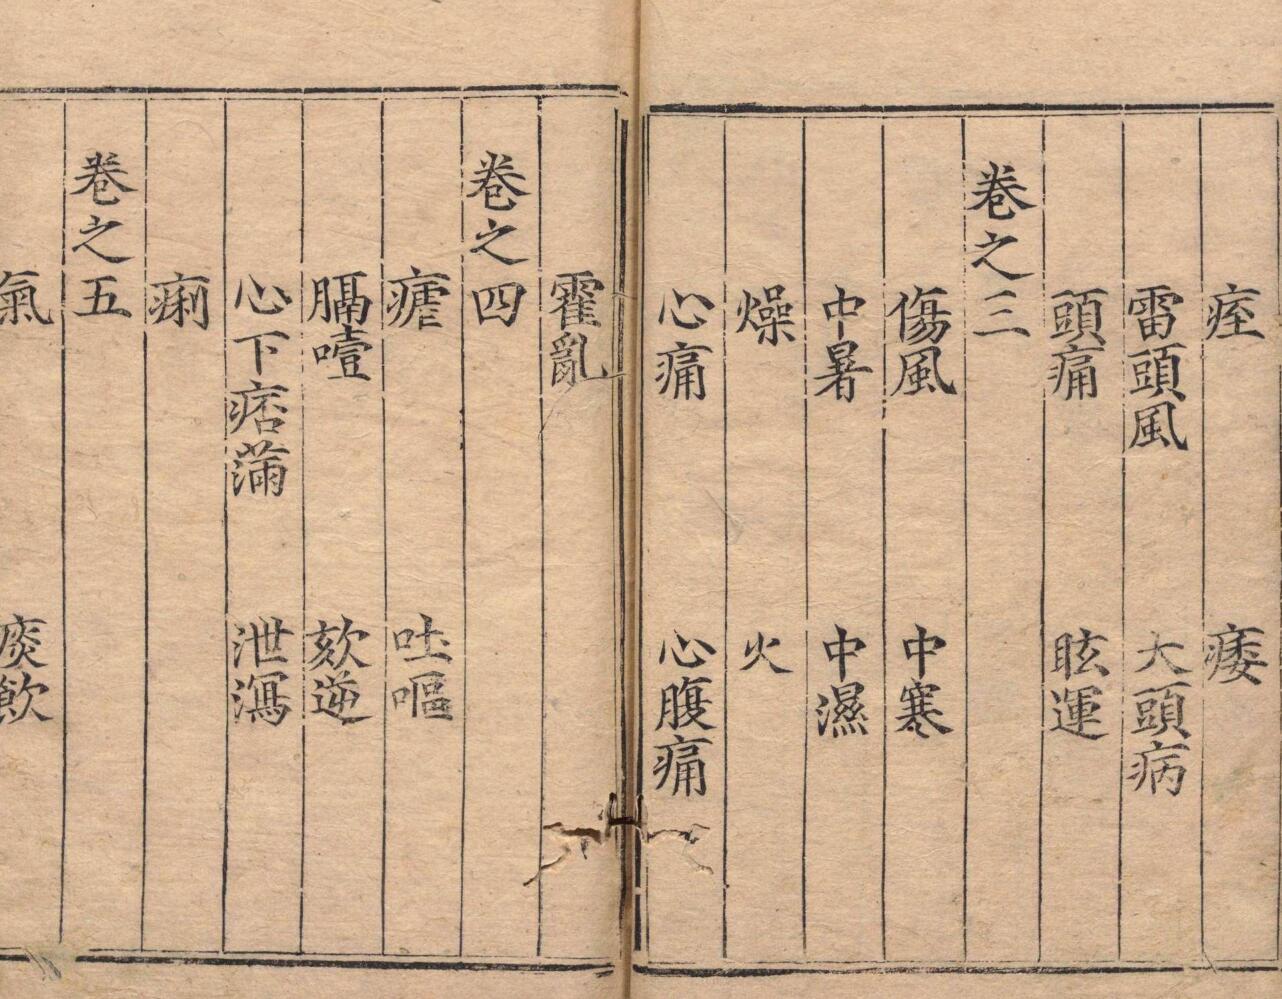 痓 痿
雷頭風 大頭病
頭痛 眩運
卷之三
傷風 中寒
中暑 中濕
燥 火
心痛 心腹痛
霍亂
卷之四
瘧 吐嘔
膈噎 欬逆
心下痞滿 泄瀉
痢
卷之五
氣 痰飲